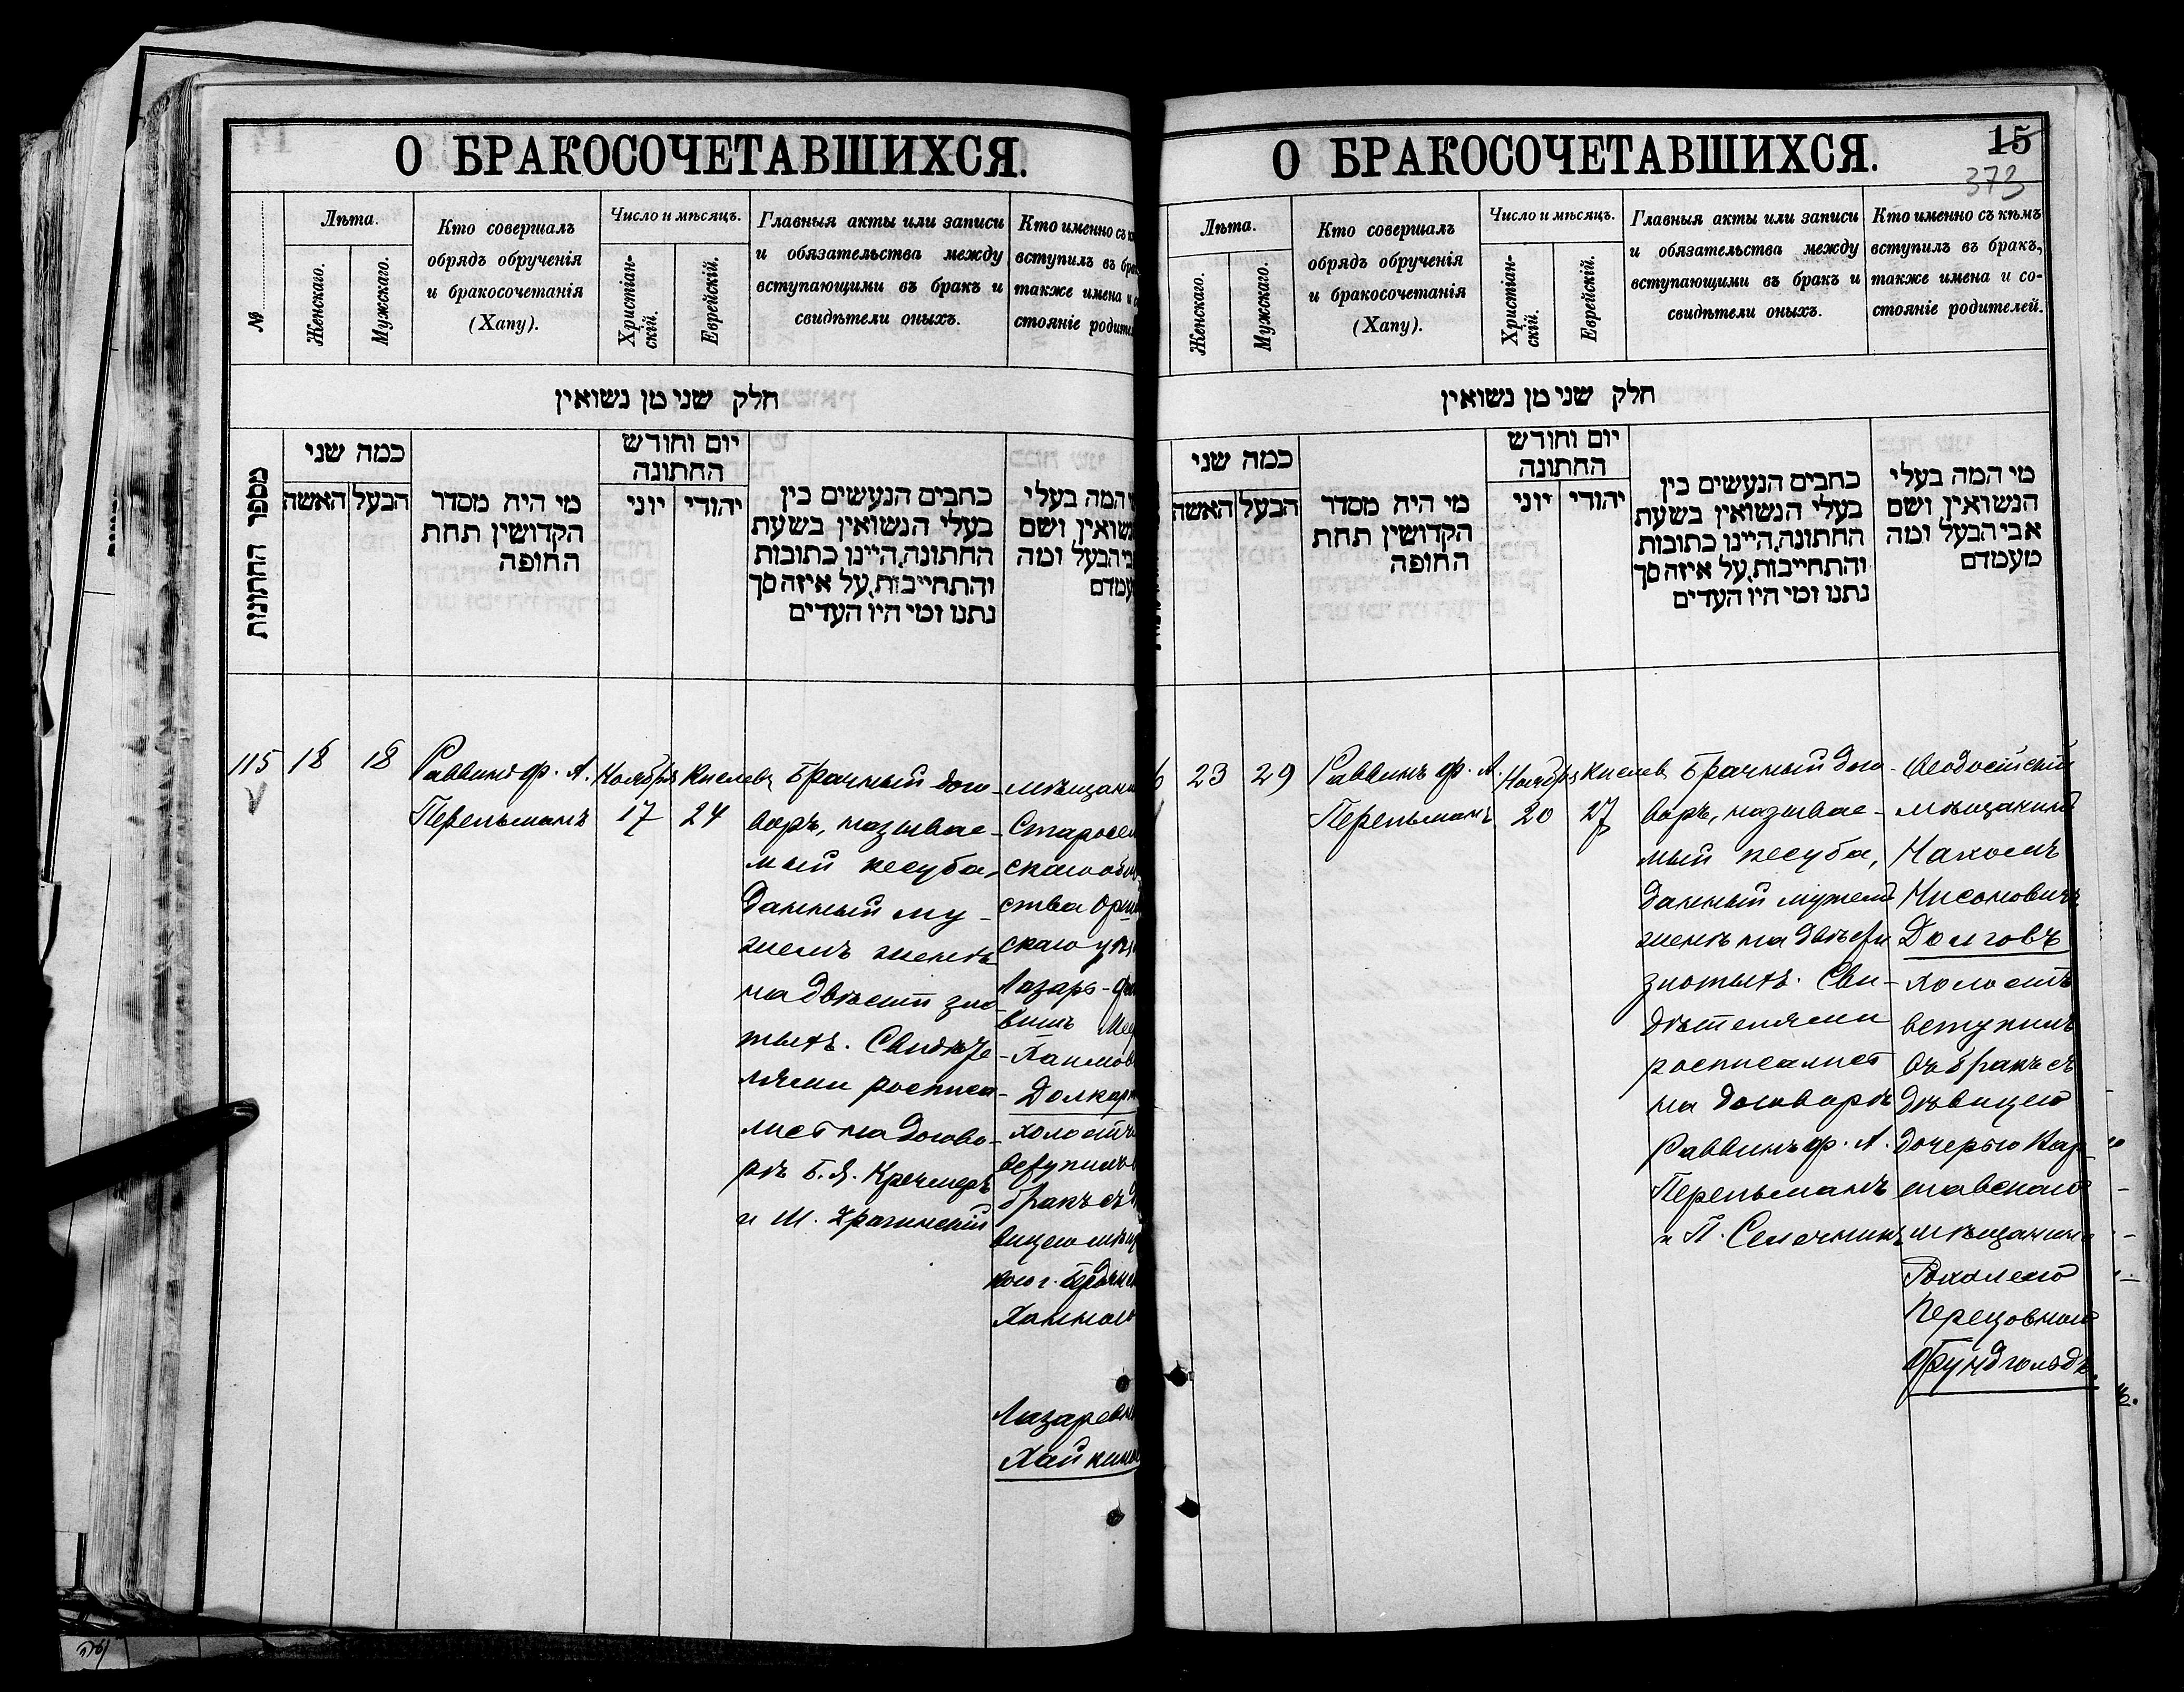 О БРАКОСОЧЕТАВШИХСЯ.
№
Лѣта.
Женскаго.
Мужскаго.
Кто совершалъ
обрядъ обрученія
и бракосочетанія
(Хапу).
Число и мѣсяцъ.
Христіан-
скій.
Еврейскій.
Главныя акты или записи
и обязательства между
вступающими въ бракъ и
свидѣтели оныхъ.
Кто именно съ
вступилъ въ
также имена
стояніе
חלק שני מן נשואין
מספר החתונות
כמה שני
האשה
הבעל
מי היה מסדר
הקדושין תחת
החופה
יום וחודש
החתונה
יוני
יהודי
כתבים הנעשים בין
בעלי הנשואין בשעת
החתונה, היינו כתובות
והתחייבות, על איזה סך
נתנו ומי היו העדים
המה בעלי
ושם
הבעל ומה
115
18
18
Раввинъ ф. А.
Перельманъ
Ноябрь
17
Кислевъ
24
Брачный дого-
воръ, называе-
мый кесуба,
данный му-
жемъ женѣ
на двѣсти зло-
тыхъ.
росписа-
лись на догово-
рѣ Б. Я. Кречмеръ
и Ш.
скаго
ства
скаго
Лазарь-
холостъ
бракъ съ
вицею
Ханною
О БРАКОСОЧЕТАВШИХСЯ.
15
373
Лѣта.
Женскаго.
Мужскаго.
Кто совершалъ
обрядъ обрученія
и бракосочетанія
(Хапу).
Число и мѣсяцъ.
Христіан-
скій.
Еврейскій.
Главныя акты или записи
и обязательства между
вступающими въ бракъ и
свидѣтели оныхъ.
Кто именно съ кѣмъ
вступилъ въ бракъ,
также имена и со-
стояніе родителей.
חלק שני מן נשואין
כמה שני
האשה
הבעל
מי היה מסדר
הקדושין תחת
החופה
יום וחודש
החתונה
יוני
יהודי
כתבים הנעשים בין
בעלי הנשואין בשעת
החתונה, היינו כתובות
והתחייבות, על איזה סך
נתנו ומי היו העדים
מי המה בעלי
הנשואין ושם
אבי הבעל ומה
מעמדם
23
29
Раввинъ ф. А.
Перельманъ
Ноябрь
20
Кислевъ
27
Брачный дого-
воръ, называе-
мый кесуба,
данный мужемъ
женѣ на двѣсти
злотыхъ. Сви-
дѣтелями
росписались
на договорѣ
Раввинъ ф. А.
Перельманъ
и П. Селечникъ
Ѳеодосійскій
мѣщанинъ
Нахомъ
Нисоновичъ
Долговъ
холостъ
вступилъ
въ бракъ съ
дѣвицею
дочерью Вар-
шавскаго
мѣщанина
Рохолею
Перецовною
Фрундгольдъ.